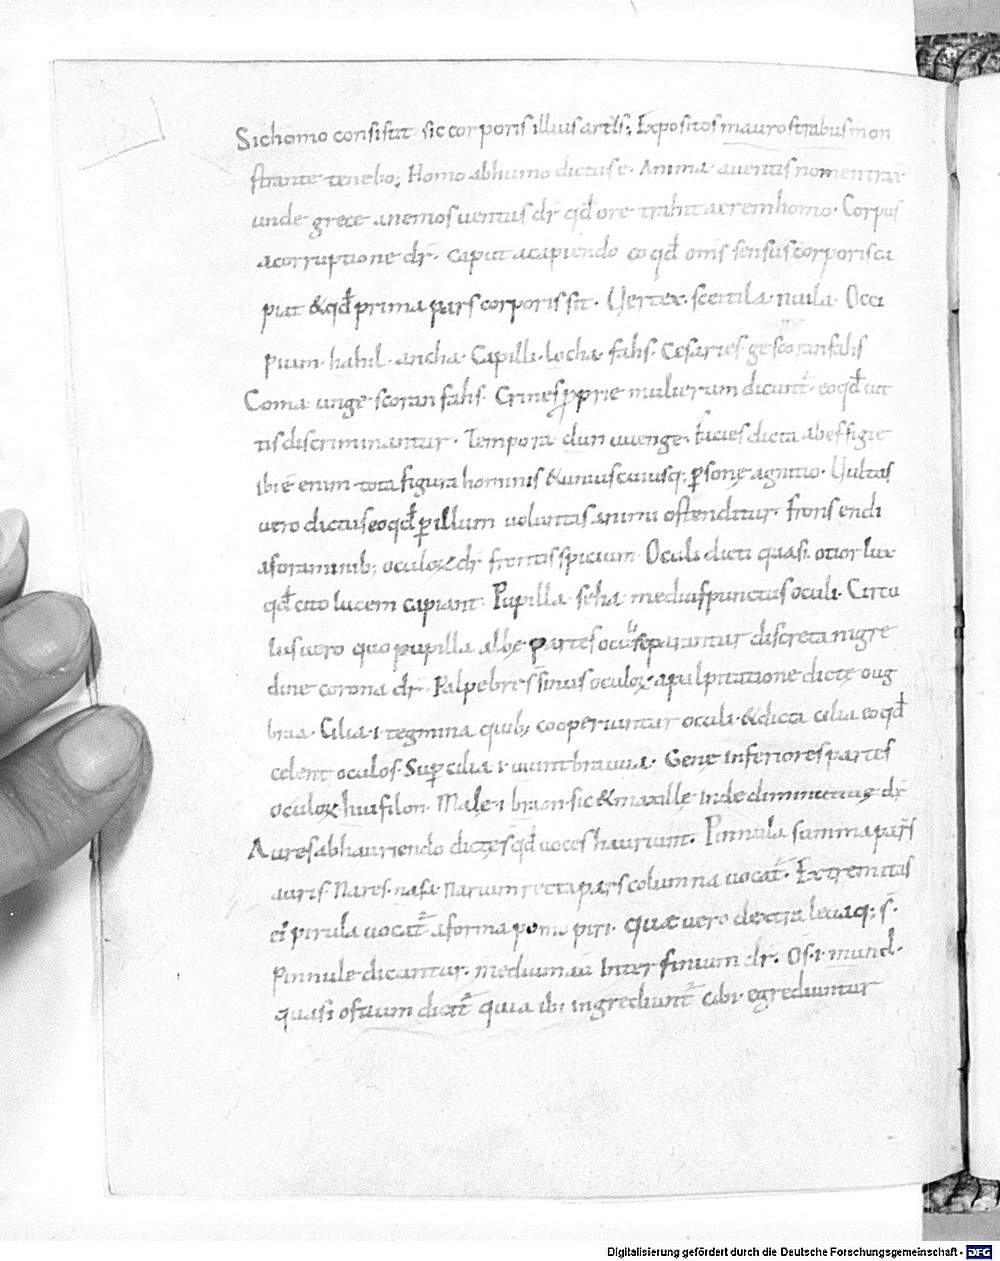 Sic homo consistit sic corporis illius artus; Expositos mauro strabus mon
strante tenebo; Homo ab humo dictus e. Anima a uentis nomen tra
unde grece anemos uentus dr qđ ore trahit aerem homo. Corpus
a corruptione dr. caput a capiendo eo qđ om̄s sensus corporis ca
piat & qđ prima pars corporis sit. Uertex. sceitila. nuila. Occi
pium. hahil. ancha. Capilli. locha. fahs. Cesaries. ge scoran fahs
Coma. unge scoran fahs. Crines pprie mulierum dicunt̄. eo qđ uit
tis discriminantur. Tempora dun uuenge. facies dicta ab effigie
ibi ē enim tota figura hominis & uniuscuiusq; psonę agnitio. Uultus
uero dictus eo qđ p illum uoluntas animi ostenditur. frons endi
a foraminib; oculoꝝ dr frontis spicium. Oculi dicti quasi otior lux
qđ cito lucem capiant. Pupilla. seha. medius punctus oculi. Circu
lus uero quo pupilla albę partes oculi separantur discreta nigre
dine corona dr. Palpebre s sinus oculoꝝ a palpitatione dictę oug
braa. Cilia .i. tegmina quib; cooperiuntur oculi. & dicta cilia eo qđ
celent oculos. Supcilia .i. uuintbrauua. Genę inferiores partes
oculoꝝ. hiufilon. Malę .i. braon. sic & maxillę inde diminutiuę dr
Aures ab hauriendo dictę s qđ uoces hauriunt. Pinnula summa pars
auris Nares. nasa. Narium recta pars columna uocat̄. Extremitas
ei pirula uocat̄ a forma pomo piri. Quę uero dextra leuaq; s.
Pinnule dicantur. medium uū Inter finium dr. Os .i. mund.
quasi ostium dicit̄ quia ibi ingrediunt̄ cibi. egrediuntur
Digitalisierung gefördert durch die Deutsche Forschungsgemeinschaft - DFG